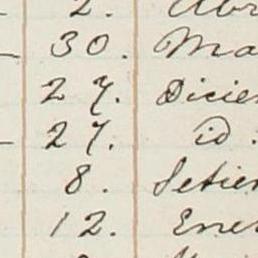 2. Abr
30. Ma
27. Dicie
27. id.
8. Setie
12. Ene